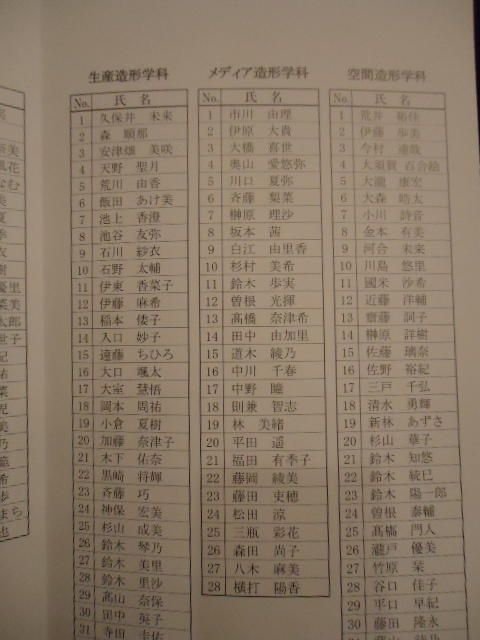 生産造形学科
No. 氏 名
1 久保井 未来
2 森 順那
3 安津畑 美咲
4 天野 聖月
5 荒川 由香
6 飯田 あけ美
7 池上 香澄
8 池谷 友弥
9 石川 紗衣
10 石野 太輔
11 伊東 香菜子
12 伊藤 麻希
13 稲本 倭子
14 入口 妙子
15 遠藤 ちひろ
16 大口 颯太
17 大室 慧悟
18 岡本 周祐
19 小倉 夏樹
20 加藤 奈津子
21 木下 佑奈
22 黒崎 将輝
23 斉藤 巧
24 神保 宏美
25 杉山 成美
26 鈴木 琴乃
27 鈴木 美里
28 鈴木 里沙
29 高山 奈保
30 田中 英子
31 寺田 圭佑
メディア造形学科
No. 氏 名
1 市川 由理
2 伊原 大貴
3 大橋 喜世
4 奥山 愛悠弥
5 川口 夏弥
6 斉藤 梨菜
7 榊原 理沙
8 坂本 茜
9 白江 由里香
10 杉村 美希
11 鈴木 歩実
12 曽根 光揮
13 高橋 奈津希
14 田中 由加里
15 道木 綾乃
16 中川 千春
17 中野 瞳
18 則兼 智志
19 林 美緒
20 平田 遥
21 福田 有季子
22 藤岡 綾美
23 藤田 束穂
24 松田 涼
25 三瓶 彩花
26 森田 尚子
27 八木 麻美
28 横打 陽香
空間造形学科
No. 氏 名
1 荒井 祐佳
2 伊藤 歩美
3 今村 達哉
4 大須賀 百合絵
5 大瀧 康宏
6 大森 皓太
7 小川 詩音
8 金本 有美
9 河合 未来
10 川島 悠里
11 國米 沙希
12 近藤 洋輔
13 齋藤 詞子
14 榊原 詳樹
15 佐藤 璃奈
16 佐野 裕紀
17 三戸 千弘
18 清水 勇輝
19 新林 あずさ
20 杉山 華子
21 鈴木 知悠
22 鈴木 統巳
23 鈴木 陽一郎
24 曽根 泰輔
25 髙橋 門人
26 瀧戸 優美
27 竹原 栞
28 谷口 佳子
29 平口 早紀
30 藤田 隆永